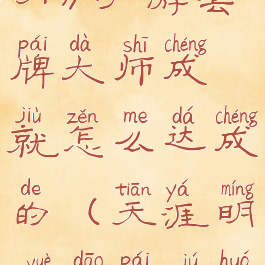 pái dà shī chéng
牌大师成
jiù zěn me dá chéng
就怎么达成
de tiān yá míng
的(天涯明
yuè dāo pái jú huó